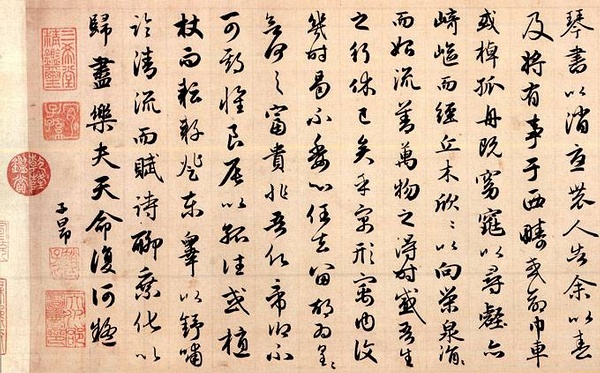 琴書以消憂農人告余以春
及將有事于西疇或命巾車
或棹孤舟既窈窕以尋壑亦
崎嶇而經丘木欣〻以向榮泉涓〻
而始流善萬物之得時感吾生
之行休已矣乎寓形寓內復
幾時曷不委心任去留胡為
何之富貴非吾願帝鄉不
可期懷良辰以孤往或植
杖而耘耔登東皋以舒嘯
臨清流而賦詩聊乘化以
歸盡樂夫天命復何疑
子昂
三希堂精鑑璽
宜子孫
乾隆鑑賞